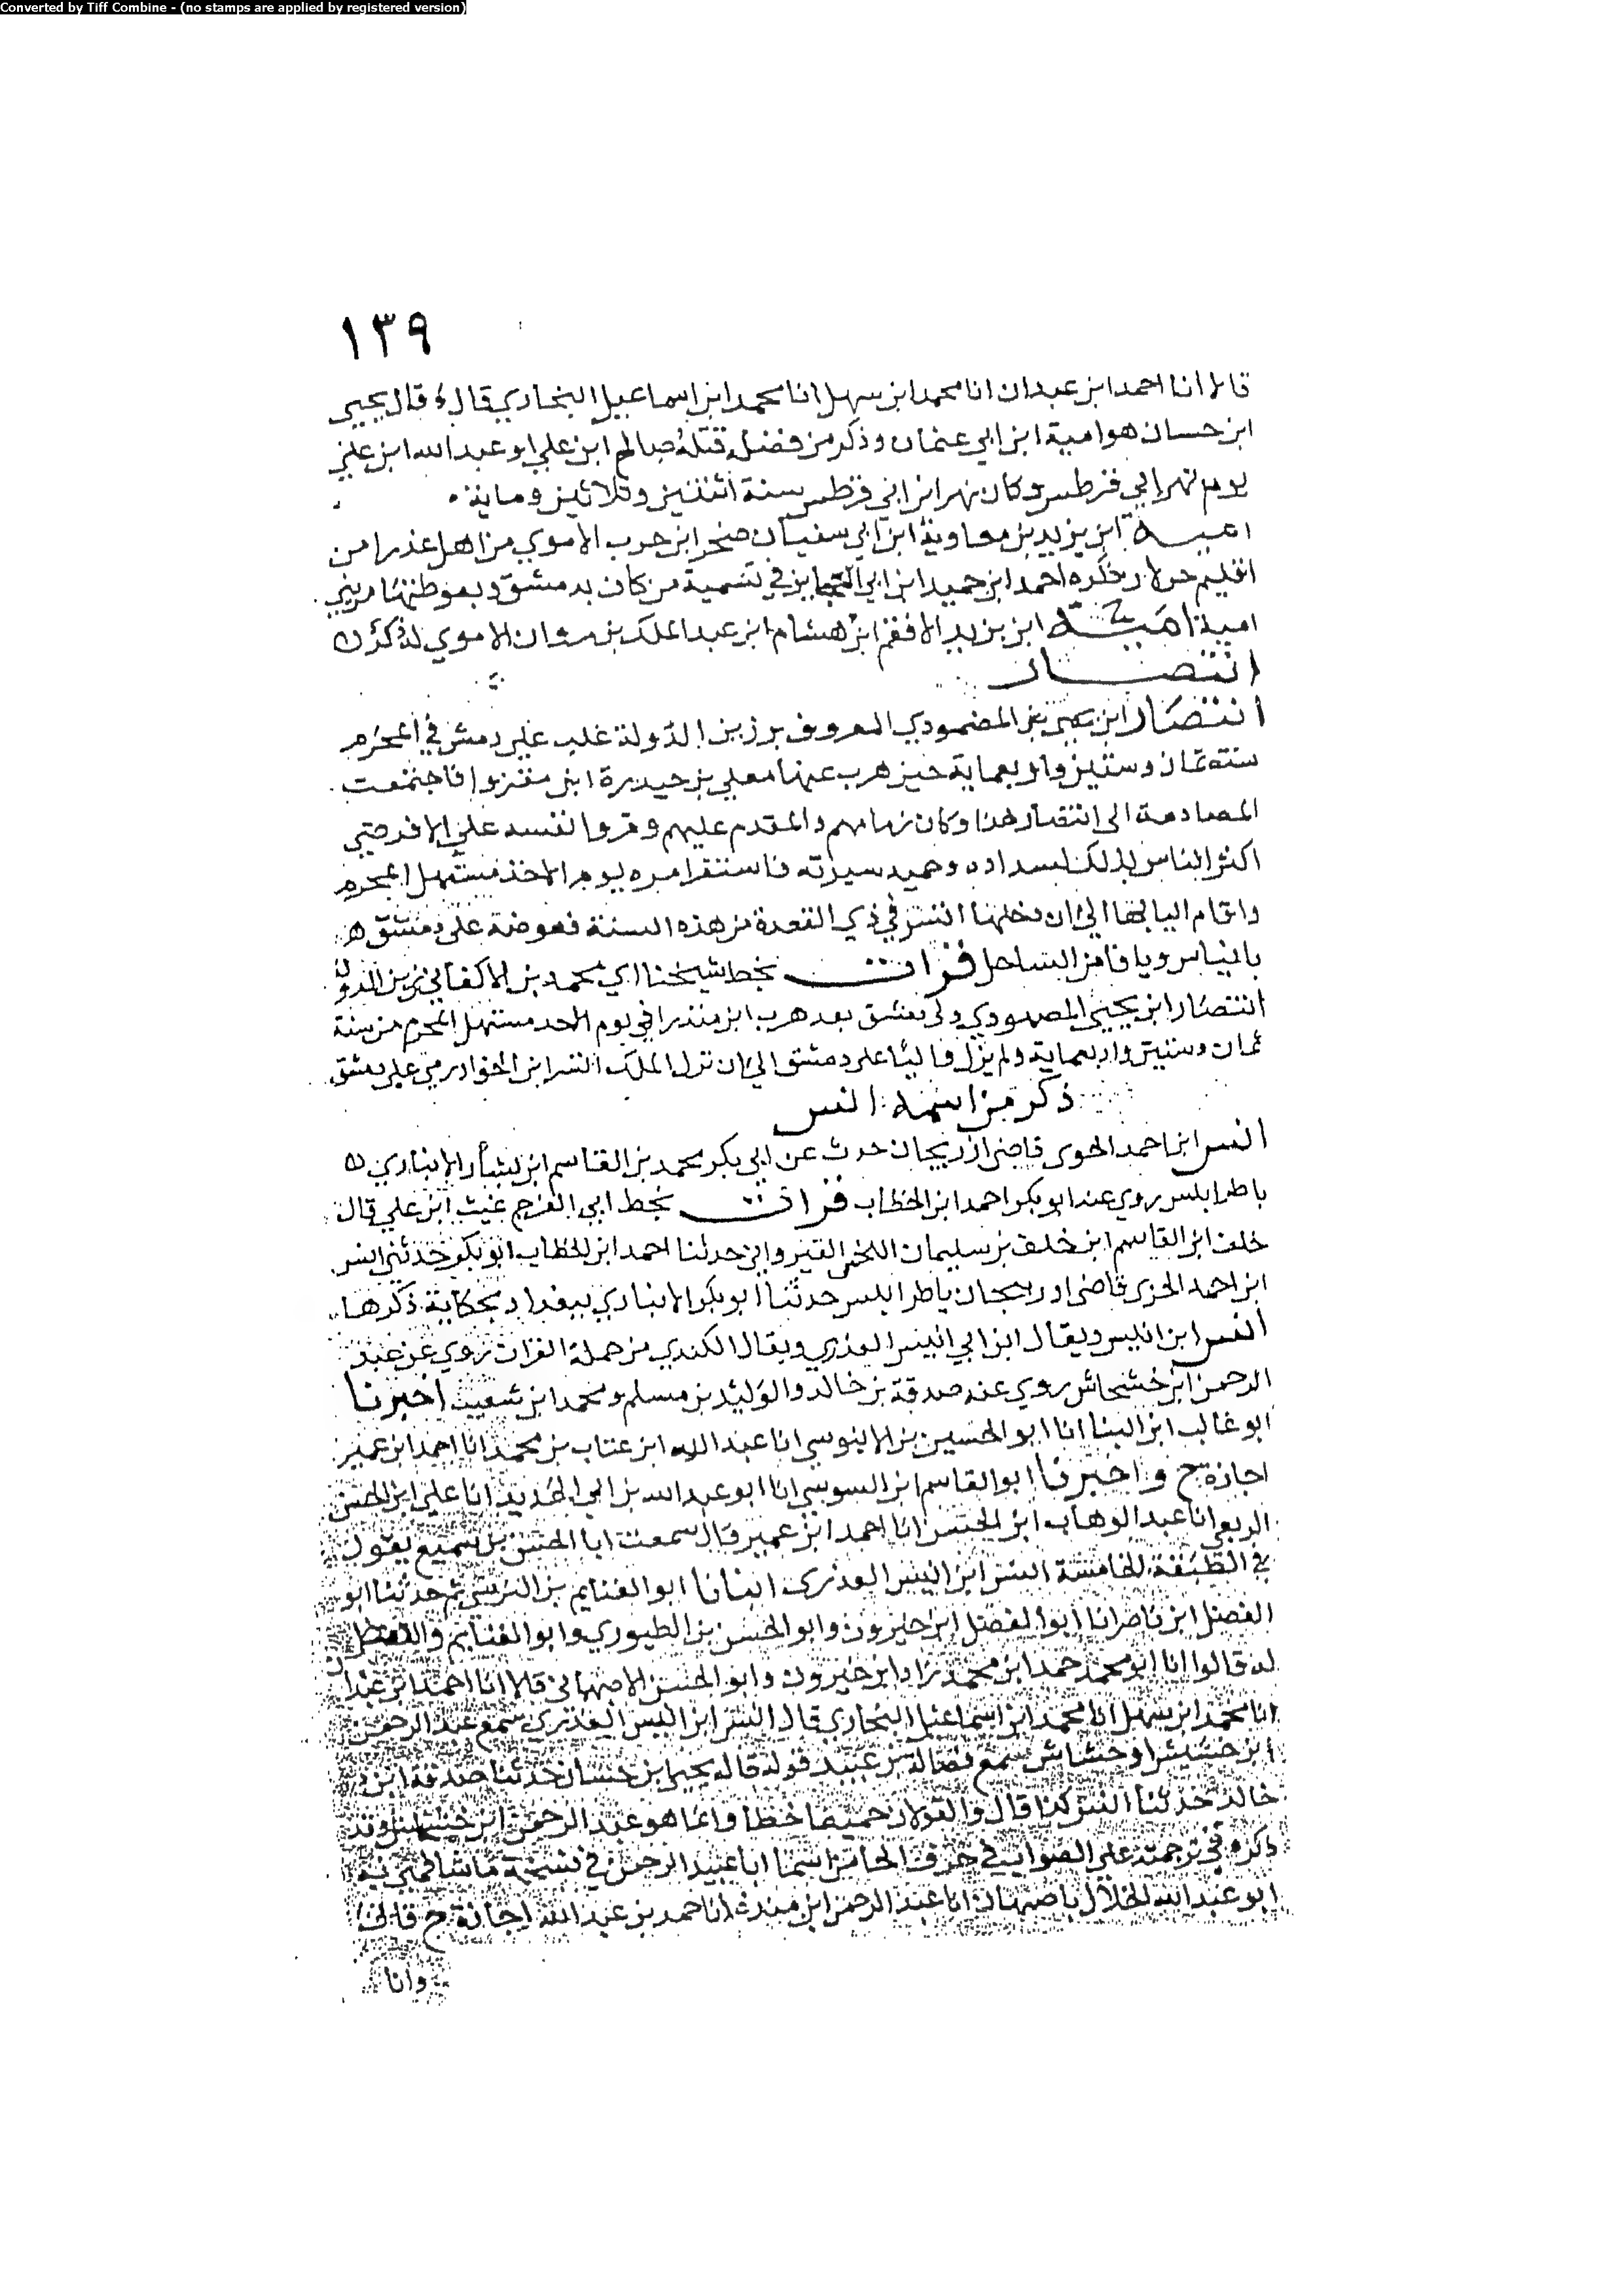 Converted by Tiff Combine - (no stamps are applied by registered version)
١٣٩
قالا انا احمد ابن عبدان انا محمد ابن سهل انا محمد ابن اسماعيل البخاري قال قال يحيى
ابن حسان هو امية ابن ابي عثمان وذكر من فضله قتله صالح ابن علي ابو عبد الله ابن علي
يوم نهر ابي فرطس وكان نهر ابن ابي فرطس سنة اثنتين وثلاثين وماية
امية ابن يزيد بن معاوية ابن ابي سفيان صخر ابن حرب الاموي من اهل عذرا من
اقليم خولان ذكره احمد ابن حميد ابن ابي العجايز في تسمية من كان بدمشق وبغوطتها من بني
امية امية ابن يزيد الافقم ابن هشام ابن عبد الملك بن مروان الاموي له ذكر
انتصار
انتصار ابن يحيى بن المصمودي المعروف برزين الدولة غلب على دمشق في المحرم
سنة ثمان وستين واربعماية حين هرب عنها معلي بن حيدرة ابن منزوا فاجتمعت
المصامدة الى انتصار هذا وكان زمامهم والمقدم عليهم وقروا نفسه على الامر فرضي
اكثر الناس بذلك لسداده وحميد سيرته فاستقر امره يوم الاحد مستهل المحرم
واقام اليا بها الى ان دخلها اتسز في ذي القعدة من هذه السنة فعوضه على دمشق
بانياس ويافا من الساحل قرات بخط شيخنا ابي محمد بن الاكفاني رزين الدولة
انتصار ابن يحيى المصمودي ولي دمشق بعد هرب ابن منذرا في يوم الاحد مستهل المحرم من سنة
ثمان وستين واربعماية ولم يزل غالبا على دمشق الى ان نزل الملك اتسز ابن الخوارزمي على دمشق
ذكر من اسمه انس
انس ابن احمد الخوي قاضي اذربيجان حدث عن ابي بكر محمد بن القاسم ابن بشار الانباري
باطرابلس روي عنه ابو بكر احمد ابن الخطاب قرات بخط ابي الفرج غيث ابن علي قال
خلف ابن القاسم ابن خلف بن سليمان اللخمي القيرواني حدثنا احمد ابن الخطاب ابو بكر حدثني انس
ابن احمد الخزي قاضي اذربيجان باطرابلس حدثنا ابو بكر الانباري ببغداد بحكاية ذكرها
انس ابن انيس ويقال ابن ابي انيس العذري ويقال الكندي من حملة القران روي عن عبد
الرحمن ابن خشخاش روي عنه صدقة بن خالد والوليد بن مسلم ومحمد ابن شعيب اخبرنا
ابو غالب ابن البنا انا ابو الحسين بن الابنوسي انا عبد الله ابن عتاب بن محمد انا احمد ابن عمير
اجازة ح واخبرنا ابو القاسم ابن السوسي انا ابو عبد الله بن ابي الحديد انا علي ابن الحسن
الربعي انا عبد الوهاب ابن الحسن انا احمد ابن عمير قال سمعت ابا الحسن بن سميع يقول
في الطبقة الخامسة انس ابن انيس العذري انبانا ابو الغنايم بن النرسي ثم حدثنا ابو
الفضل ابن ناصر انا ابو الفضل ابن خيرون وابو الحسن بن الطيوري وابو الغنايم واللفظ
له قالوا انا ابو محمد حمد ابن محمد زاد ابن خيرون وابو الحسن الاصبهاني قالا انا احمد ابن عبدان
انا محمد ابن سهل انا محمد ابن اسماعيل البخاري قال انس ابن انيس العذري سمع عبد الرحمن
ابن حسيس او حشاش سمع فضالة بن عبيد قوله قاله يحيى ابن حسان حدثنا صدقة ابن
خالد حدثنا انس كذا قال والقولان جميعا خطا وانما هو عبد الرحمن ابن خشخاش وقد
ذكره في ترجمته على الصواب في حرف الخا من اسما ابا عبيد الرحمن في تسمية ما شافهني به
ابو عبد الله الخلال باصبهان انا عبد الرحمن ابن مندة انا حمد بن عبد الله اجازة ح قال
وانا